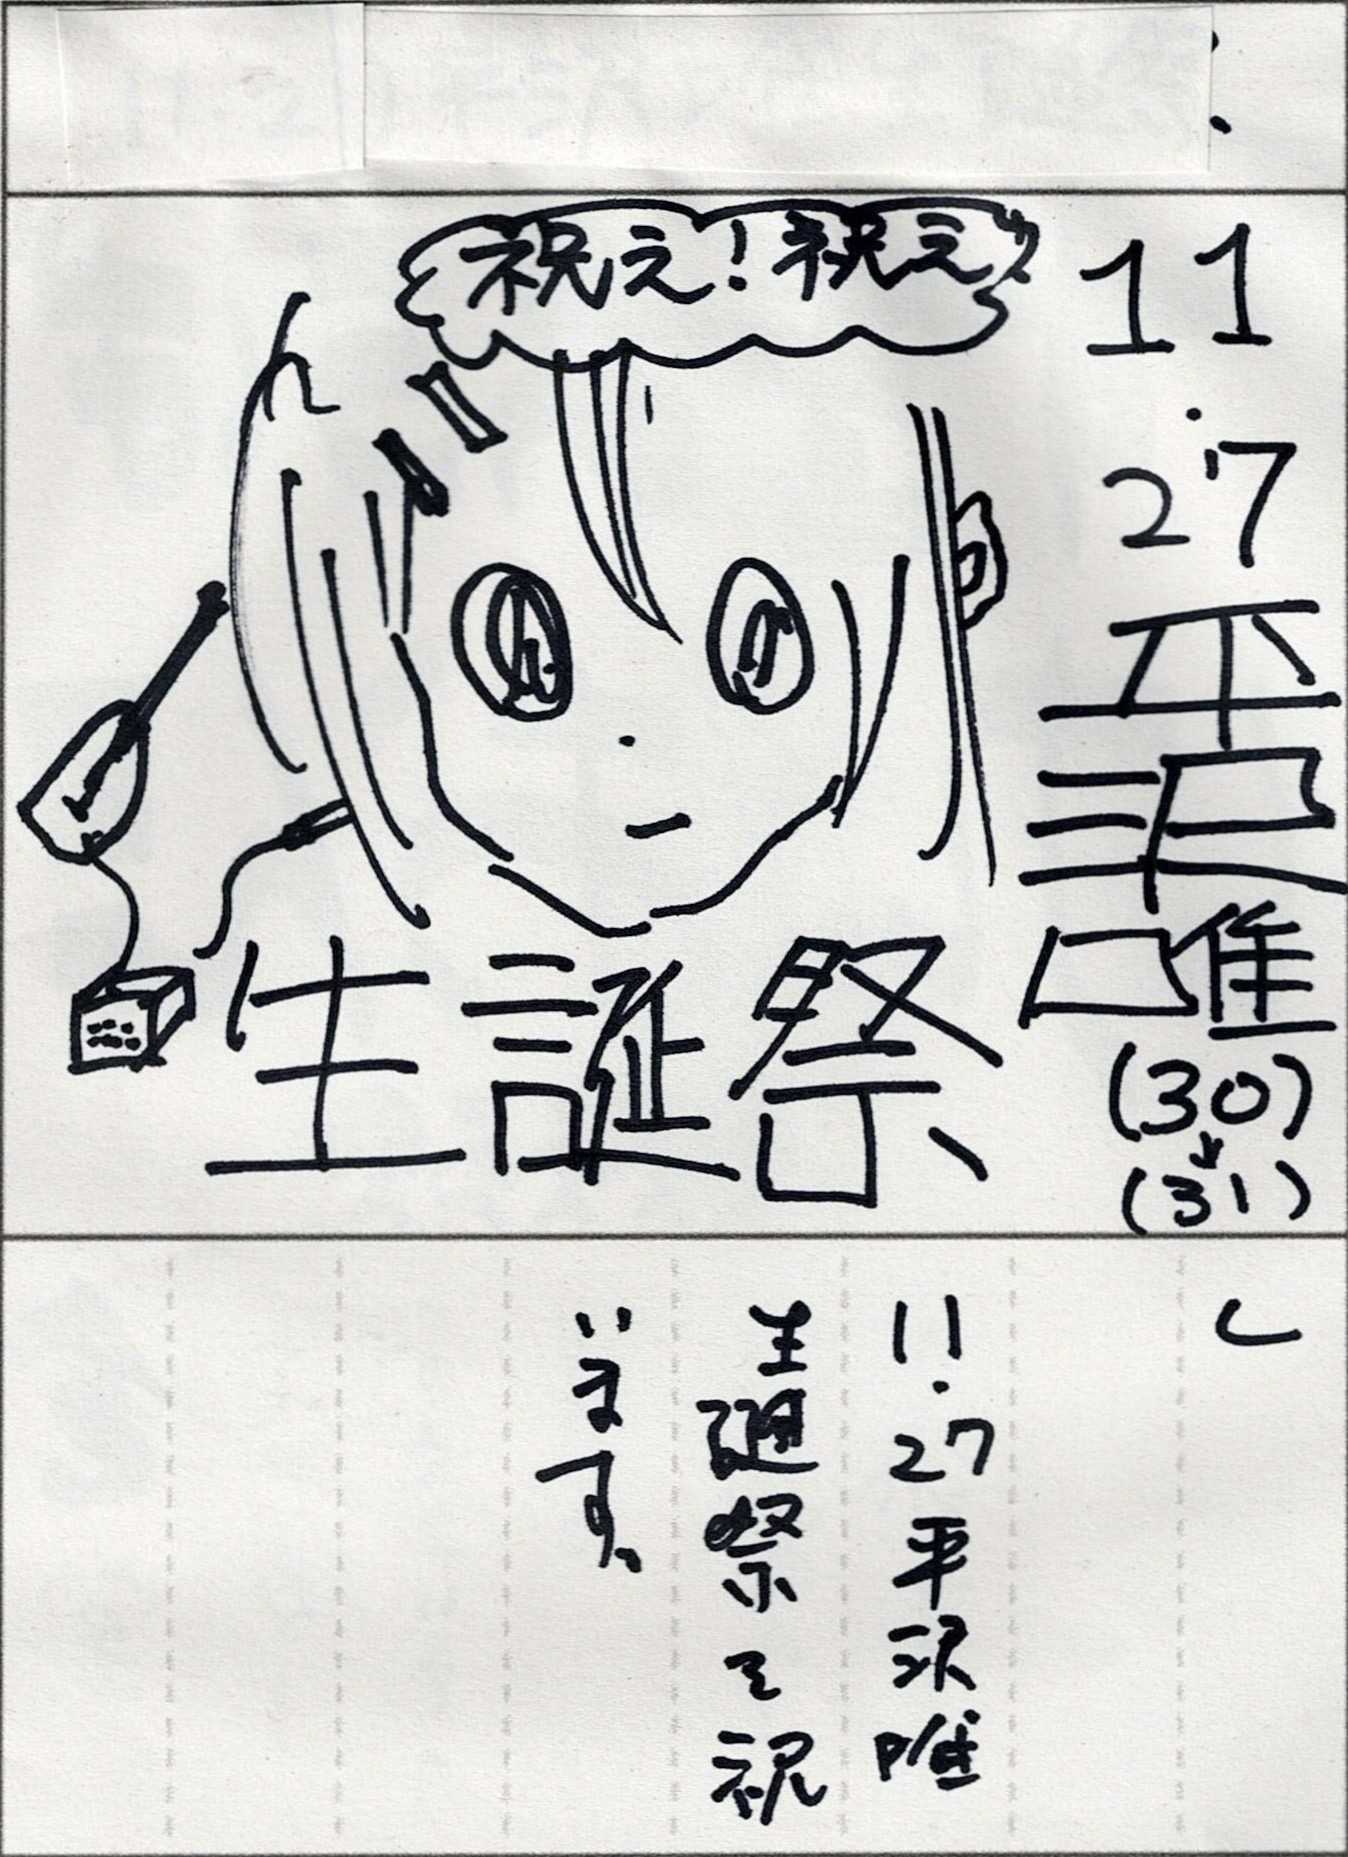 祝え!祝え
11
27
平沢唯
(30)
(31)
生誕祭
11.27平沢唯
生誕祭を祝
います。